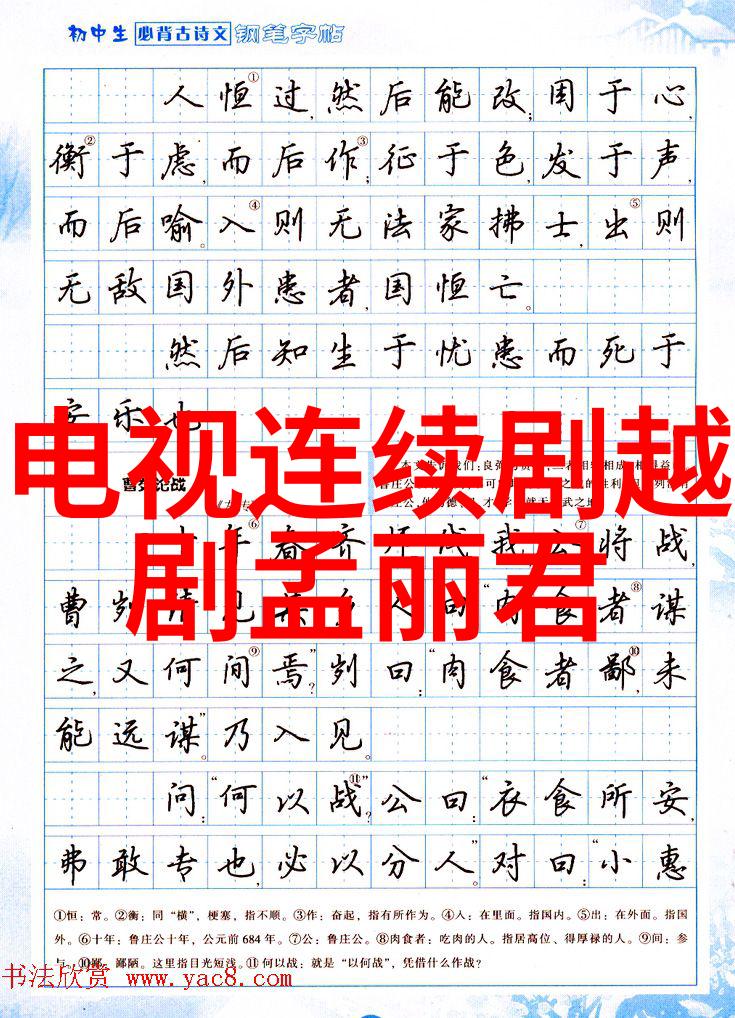 初中生 必背古诗文 钢笔字帖
人恒①过,然后能改;困于心,
衡②于虑,而后作③;征于色,发于声,
而后喻。入④则无法家拂士,出⑤则
无敌国外患者,国恒亡。
然后知生于忧患而死于
安乐也
电视连续剧越
论战
年⑥春齐师伐我,公⑦将战,
剧孟丽君
曹刿请见其乡人曰:“肉食者⑧谋
之,又何间⑨焉?”刿曰:“肉食者鄙⑩,未
能远谋。”乃入见。
问:“何以战⑪?”公曰:“衣食所安,
弗敢专也,必以分人。”对曰:“小惠
①恒：常。②衡：同“横”，梗塞，指不顺。③作：奋起，指有所作为。④入：在里面。指国内。⑤出：在外面。指国
外。⑥十年：鲁庄公十年，公元前684年。⑦公：鲁庄公。⑧肉食者：吃肉的人。指居高位、得厚禄的人。⑨间：参
与。⑩鄙：鄙陋。这里指目光短浅。⑪何以战：就是“以何战”，凭借什么作战？
书法欣赏 www.yac8.com